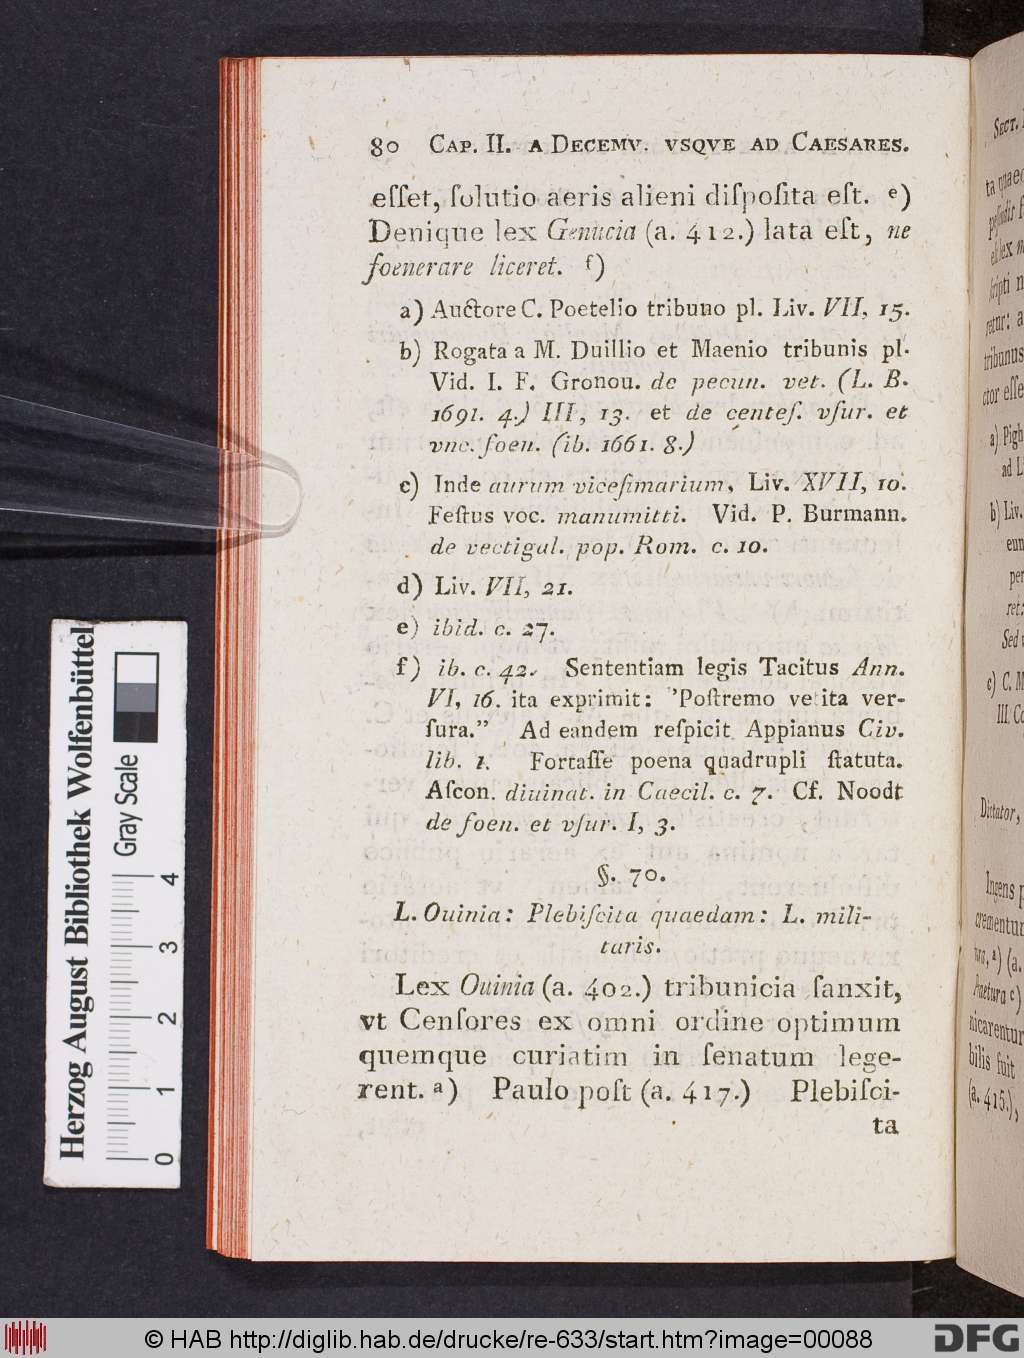 80 CAP. II. A DECEMV. VSQVE AD CAESARES.
eſſet, ſolutio aeris alieni diſpoſita eſt. e)
Denique lex Genucia (a. 412.) lata eſt, ne
foenerare liceret. f)
a) Auctore C. Poetelio tribuno pl. Liv. VII, 15.
b) Rogata a M. Duillio et Maenio tribunis pl.
Vid. I. F. Gronou. de pecun. vet. (L. B.
1691. 4.) III, 13. et de centeſ. vſur. et
vnc. foen. (ib. 1661. 8.)
c) Inde aurum viceſimarium, Liv. XVII, 10.
Feſtus voc. manumitti. Vid. P. Burmann.
de vectigal. pop. Rom. c. 10.
d) Liv. VII, 21.
e) ibid. c. 27.
f) ib. c. 42. Sententiam legis Tacitus Ann.
VI, 16. ita exprimit: ’Poſtremo vetita ver-
ſura.” Ad eandem reſpicit Appianus Civ.
lib. 1. Fortaſſe poena quadrupli ſtatuta.
Aſcon. diuinat. in Caecil. c. 7. Cf. Noodt
de foen. et vſur. I, 3.
§. 70.
L. Ouinia: Plebiſcita quaedam: L. mili-
taris.
Lex Ouinia (a. 402.) tribunicia ſanxit,
vt Cenſores ex omni ordine optimum
quemque curiatim in ſenatum lege-
rent. a) Paulo poſt (a. 417.) Plebiſci-
ta
SECT.
ta
elex
ſcripti
retur: a
tribunus
ctor eſſe
a) Pigh
ad L
b) Liv.
eun
per
ret:
Sed
c) C. M
III. Co
Dictator,
Ingens p
crementur
a) (a.
Praetura c)
nicarentur
bilis fuit
(a. 415.),
Herzog August Bibliothek Wolfenbüttel
Gray Scale
0 1 2 3 4
© HAB http://diglib.hab.de/drucke/re-633/start.htm?image=00088
DFG